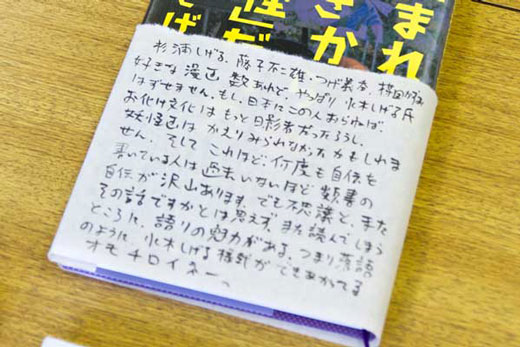 まれ
きか
怪」だ
げ
杉浦しげる、藤子不二雄、つげ義春、楳図かずお
好きな漫画 数あれど、やっぱり 水木しげる氏
はずせません。もし、日本にこの人おられねば、
お化け文化は もっと日影者だったろうし、
妖怪画は かえりみられなかったかもしれま
せん。そして これほど何度も自伝を
書いている人は 過去いないほど 数書の
自伝が沢山あります。でも不思議と、また
その話ですかとは思えず、また読んでしまう
ところに、語りの魅力がある。つまり落語
のように、水木しげる様式が できあがってる
オモチロイネー。